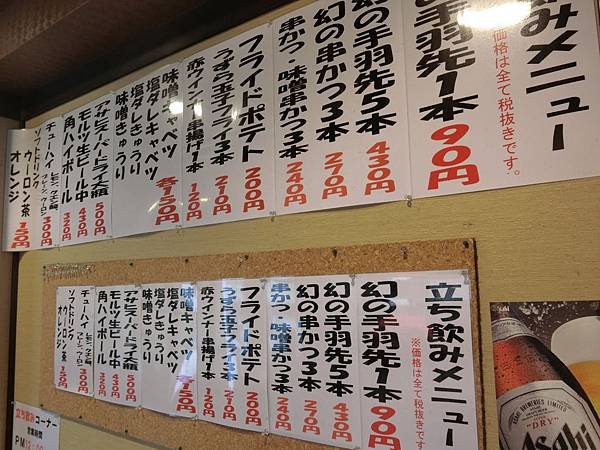 立ち飲みメニュー
※価格は全て税抜きです。
幻の手羽先1本 90円
幻の手羽先5本 430円
幻の串かつ3本 270円
串かつ・味噌串かつ3本 240円
フライドポテト 200円
うずら玉子フライ3本 210円
赤ウインナー串揚げ1本 120円
味噌キャベツ
塩ダレキャベツ
塩ダレきゅうり
味噌きゅうり
各150円
アサヒスーパードライ大瓶 500円
モルツ生ビール中 430円
角ハイボール 320円
チューハイ 300円
ソフトドリンク
ウーロン茶
オレンジ 150円
立ち飲みメニュー
※価格は全て税抜きです
幻の手羽先1本 90円
幻の手羽先5本 430円
幻の串かつ3本 270円
串かつ・味噌串かつ3本 240円
フライドポテト 200円
うずら玉子フライ3本 210円
赤ウインナー串揚げ1本 120円
味噌キャベツ
塩ダレキャベツ
塩ダレきゅうり
味噌きゅうり
各150円
アサヒスーパードライ大瓶 500円
モルツ生ビール中 430円
角ハイボール 320円
チューハイ 300円
ソフトドリンク
ウーロン茶
オレンジ 150円
立ち飲みコーナー
営業時間
PM
ASAHI BREWERIES LIMITED
"DRY"
Asahi